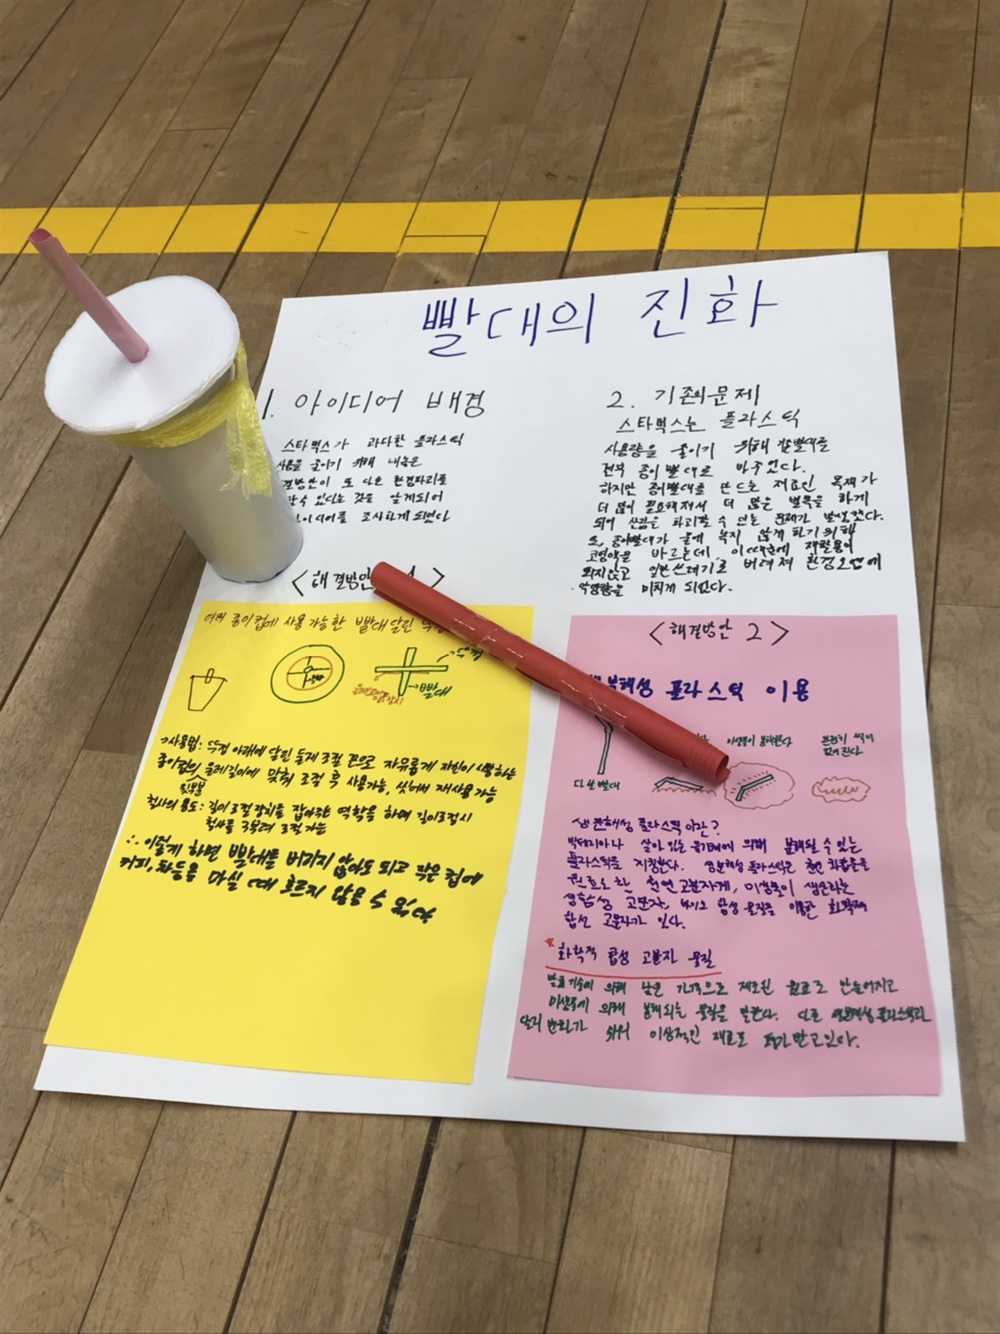 빨대의 진화
1. 아이디어 배경
스타벅스가 과다한 플라스틱
사용을 줄이기 위해 내놓은
해결방안이 또 다른 환경파괴를
할 수 있다는 것을 알게되어
아이디어를 조사하게 되었다
2. 기존의 문제
스타벅스는 플라스틱
사용량을 줄이기 위해 빨대를
전부 종이 빨대로 바꾸었다.
하지만 종이빨대를 만드는 재료인 목재가
더 많이 필요해져서 더 많은 벌목을 하게
되어 산림을 파괴할 수 있는 문제가 발생했다.
또, 종이빨대가 물에 녹지 않게 하기 위해
코팅약을 바르는데, 이 때문에 재활용이
되지않고 일반쓰레기로 버려져 환경오염에
악영향을 미치게 되었다.
<해결방안 1>
어떤 종이컵에 사용 가능한 빨대 달린
빨대
→사용법: 뚜껑 아래에 달린 둘레 조절 끈으로 자유롭게 자신이 사용하는
종이컵의 둘레길이에 맞춰 조절 후 사용가능, 씻어서 재사용 가능
윗부분
철사의 용도: 길이 조절 장치를 잡아주는 역할을 하며 길이조절시
철사를 구부려 조절 가능
∴ 이렇게 하면 빨대를 버리지 않아도 되고 작은 컵에
커피, 차등을 마실 때 흐르지 않을 수 있
<해결방안 2>
분해성 플라스틱 이용
다 쓴 빨대
미생물이 분해한다
완전히 썩어
없어진다.
생분해성 플라스틱 이란?
박테리아나 살아 있는 유기체에 의해 분해될 수 있는
플라스틱을 지칭한다. 생분해성 플라스틱은 천연 화합물을
원료로 한 천연 고분자계, 미생물이 생산하는
생합성 고분자, 바이오 합성 물질을 이용한 화학적
합성 고분자가 있다.
*화학적 합성 고분자 물질
발효 기술에 의해 낮은 가격으로 제조된 원료로 만들어지고
미생물에 의해 분해되는 물질을 말한다. 다른 생분해성 플라스틱과
달리 변화가 쉬워 이상적인 재료로 평가받고있다.